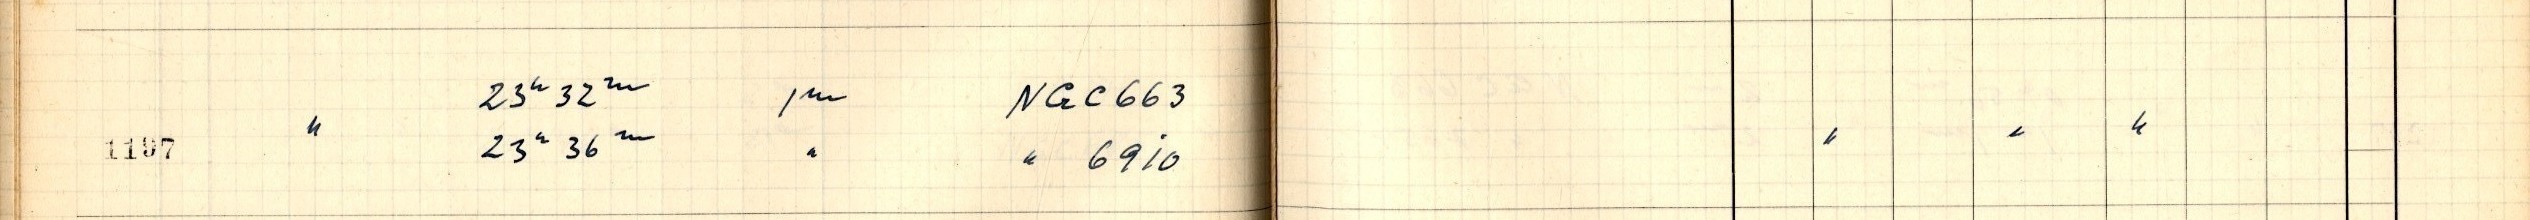 23h 32m 1m NGC 663
1197 " 23h 36m " " 6910 " " "